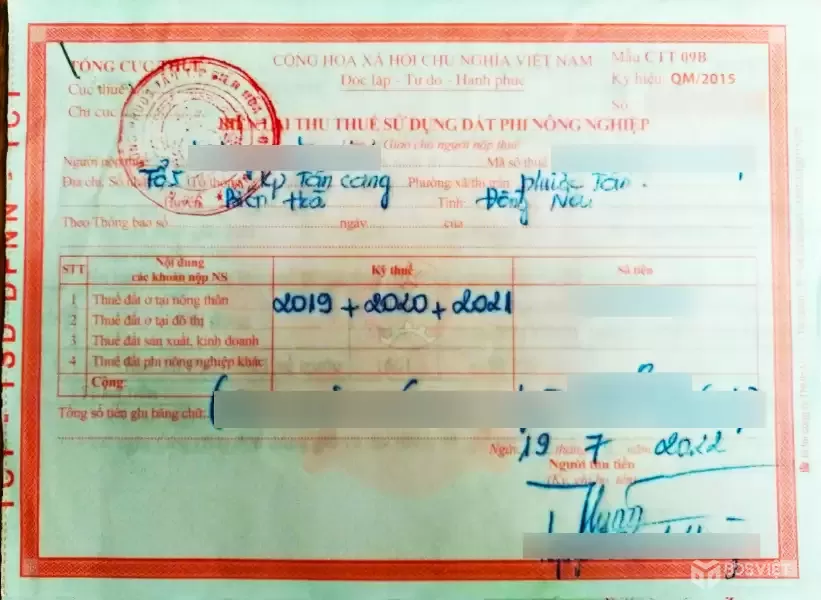 TỔNG CỤC THUẾ CỘNG HÒA XÃ HỘI CHỦ NGHĨA VIỆT NAM Mẫu CTT 09B
Cục thuế Độc lập - Tự do - Hạnh phúc Ký hiệu: QM/2015
Chi cục Số
BIÊN LAI THU THUẾ SỬ DỤNG ĐẤT PHI NÔNG NGHIỆP
Giao cho người nộp thuế
Người nộp thuế Mã số thuế
Địa chỉ: Số nhà Tổ 5 Kp Tân Cang Phường/xã/thị trấn Phước Tân
Huyện Biên Hoà Tỉnh: Đồng Nai
Theo Thông báo số ngày của
STT Nội dung các khoản nộp NS Kỳ thuế Số tiền
1 Thuế đất ở tại nông thôn 2019 + 2020 + 2021
2 Thuế đất ở tại đô thị
3 Thuế đất sản xuất, kinh doanh
4 Thuế đất phi nông nghiệp khác
Cộng:
Tổng số tiền ghi bằng chữ:
Ngày 19 tháng 7 năm 2022
Người thu tiền
(Ký, ghi họ tên)
BĐSVIỆT